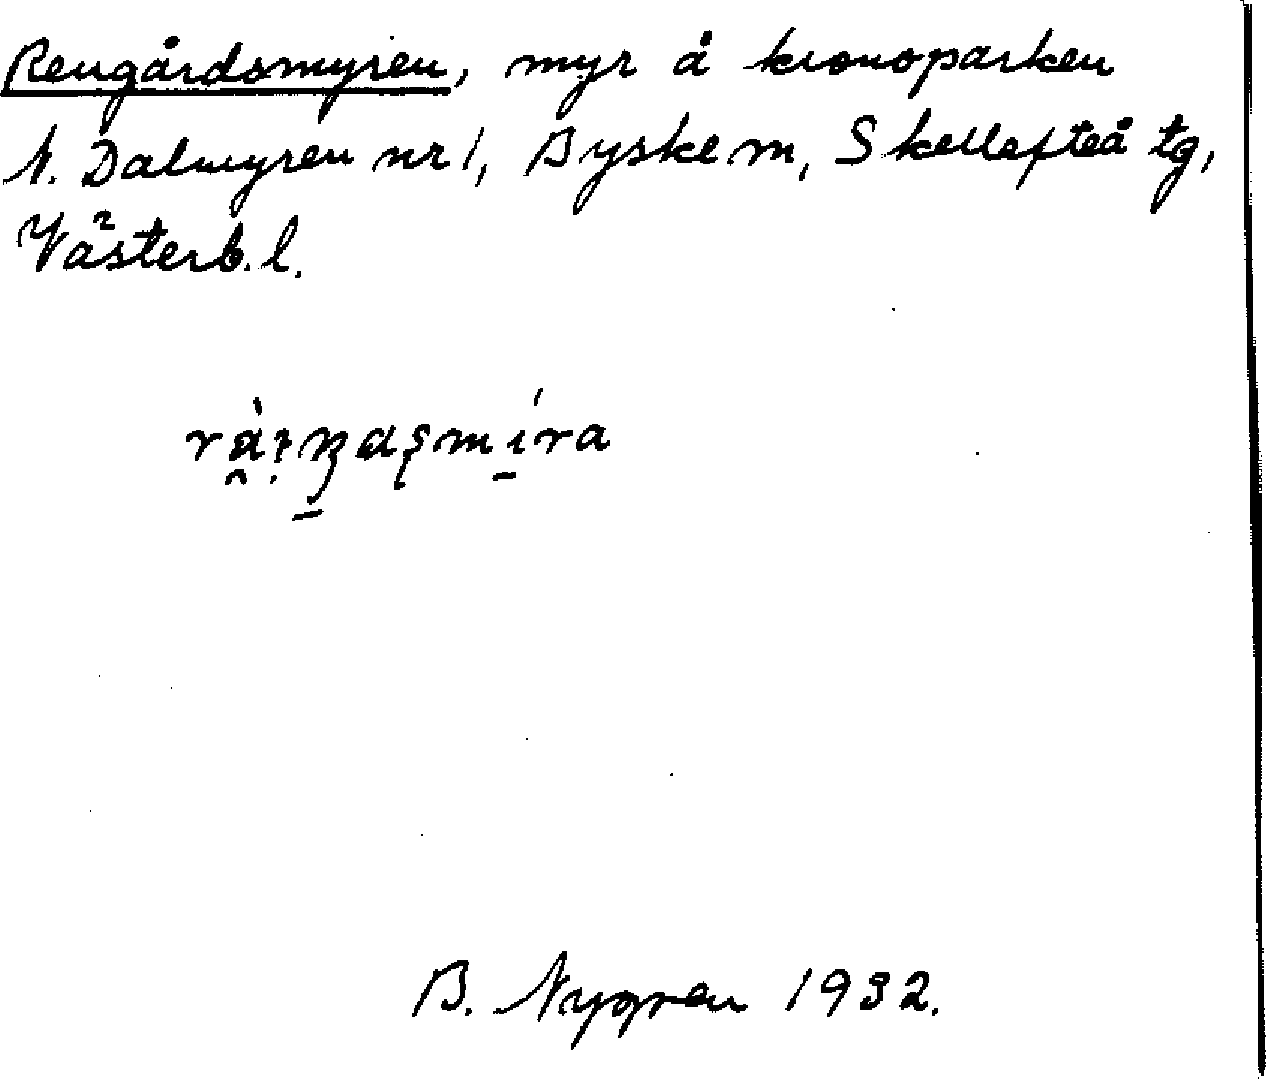 Rengårdsmyren, myr å kronoparken
N. Dalmyren nr 1, Byske m, Skellefteå tg,
Västerb. l.
B. Nygren 1932.